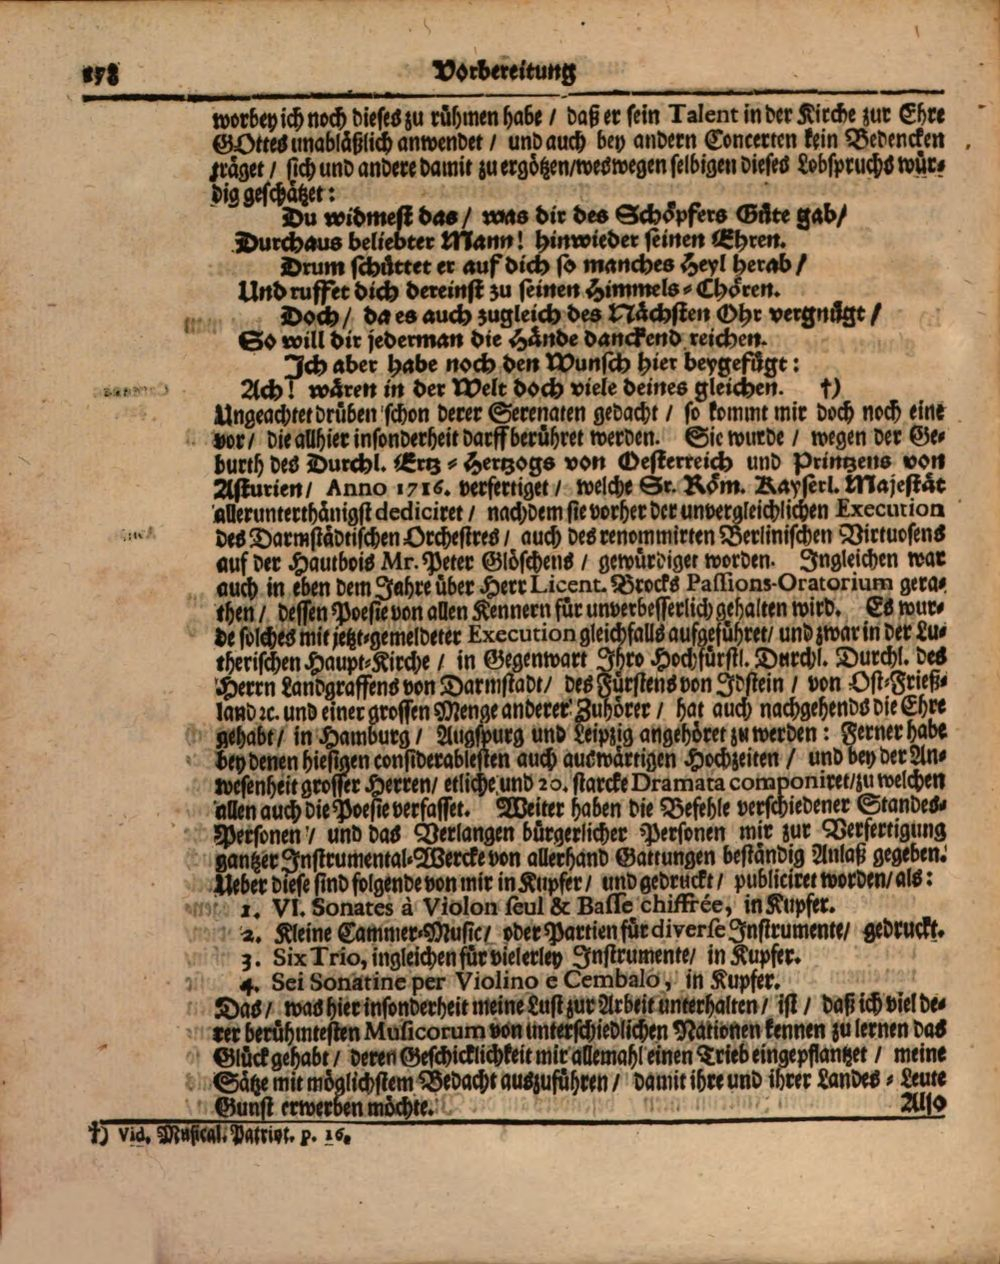 178 Vorbereitung
worbey ich noch dieses zu rühmen habe / daß er sein Talent in der Kirche zur Ehre
GOttes unabläßlich anwendet / und auch bey andern Concerten kein Bedencken
träget / sich und andere damit zu ergötzen/weswegen selbigen dieses Lobspruchs wür-
dig geschätzet:
Du widmest das / was dir des Schöpfers Güte gab/
Durchaus beliebter Mann! hinwieder seinen Ehren.
Drum schüttet er auf dich so manches Heyl herab /
Und ruffet dich dereinst zu seinen Himmels-Chören.
Doch / da es auch zugleich des Nächsten Ohr vergnügt /
So will dir jederman die Hände danckend reichen.
Ich aber habe noch den Wunsch hier beygefügt:
Ach! wären in der Welt doch viele deines gleichen. †)
Ungeachtet drüben schon derer Serenaten gedacht / so kommt mir doch noch eine
vor / die allhier insonderheit darff berühret werden. Sie wurde / wegen der Ge-
burth des Durchl. Ertz-Hertzogs von Oesterreich und Printzens von
Asturien / Anno 1716. verfertiget / welche Sr. Röm. Kayserl. Majestät
allerunterthänigst dediciret / nachdem sie vorher der unvergleichlichen Execution
des Darmstädtischen Orchestres / auch des renommirten Berlinischen Virtuosens
auf der Hautbois Mr. Peter Glöschens / gewürdiget worden. Ingleichen war
auch in eben dem Jahre über Herr Licent. Brocks Passions-Oratorium gera-
then / dessen Poesie von allen Kennern für unverbesserlich gehalten wird. Es wur-
de solches mit jetzt-gemeldeter Execution gleichfalls aufgeführet / und zwar in der Lu-
therischen Haupt-Kirche / in Gegenwart Ihro Hochfürstl. Durchl. Durchl. des
Herrn Landgraffens von Darmstadt / des Fürstens von Idstein / von Ost-Frieß-
land ꝛc. und einer grossen Menge anderer Zuhörer / hat auch nachgehends die Ehre
gehabt / in Hamburg / Augspurg und Leipzig angehöret zu werden: Ferner habe
bey denen hiesigen considerablesten auch auswärtigen Hochzeiten / und bey der An-
wesenheit grosser Herren / etliche und 20. starcke Dramata componiret / zu welchen
allen auch die Poesie verfasset. Weiter haben die Befehle verschiedener Standes-
Personen / und das Verlangen bürgerlicher Personen mir zur Verfertigung
gantzer Instrumental-Wercke von allerhand Gattungen beständig Anlaß gegeben.
Ueber diese sind folgende von mir in Kupfer / und gedruckt / publiciret worden / als:
1. VI. Sonates à Violon seul & Basse chiffrée, in Kupfer.
2. Kleine Cammer-Music / oder Partien für diverse Instrumente / gedruckt.
3. Six Trio, ingleichen für vielerley Instrumente / in Kupfer.
4. Sei Sonatine per Violino e Cembalo, in Kupfer.
Das / was hier insonderheit meine Lust zur Arbeit unterhalten / ist / daß ich viel de-
rer berühmtesten Musicorum von unterschiedlichen Nationen kennen zu lernen das
Glück gehabt / deren Geschicklichkeit mir allemahl einen Trieb eingepflantzet / meine
Sätze mit möglichstem Bedacht auszuführen / damit ihre und ihrer Landes-Leute
Gunst erwerben möchte. Also
†) Vid. Musical. Patriot. p. 16.